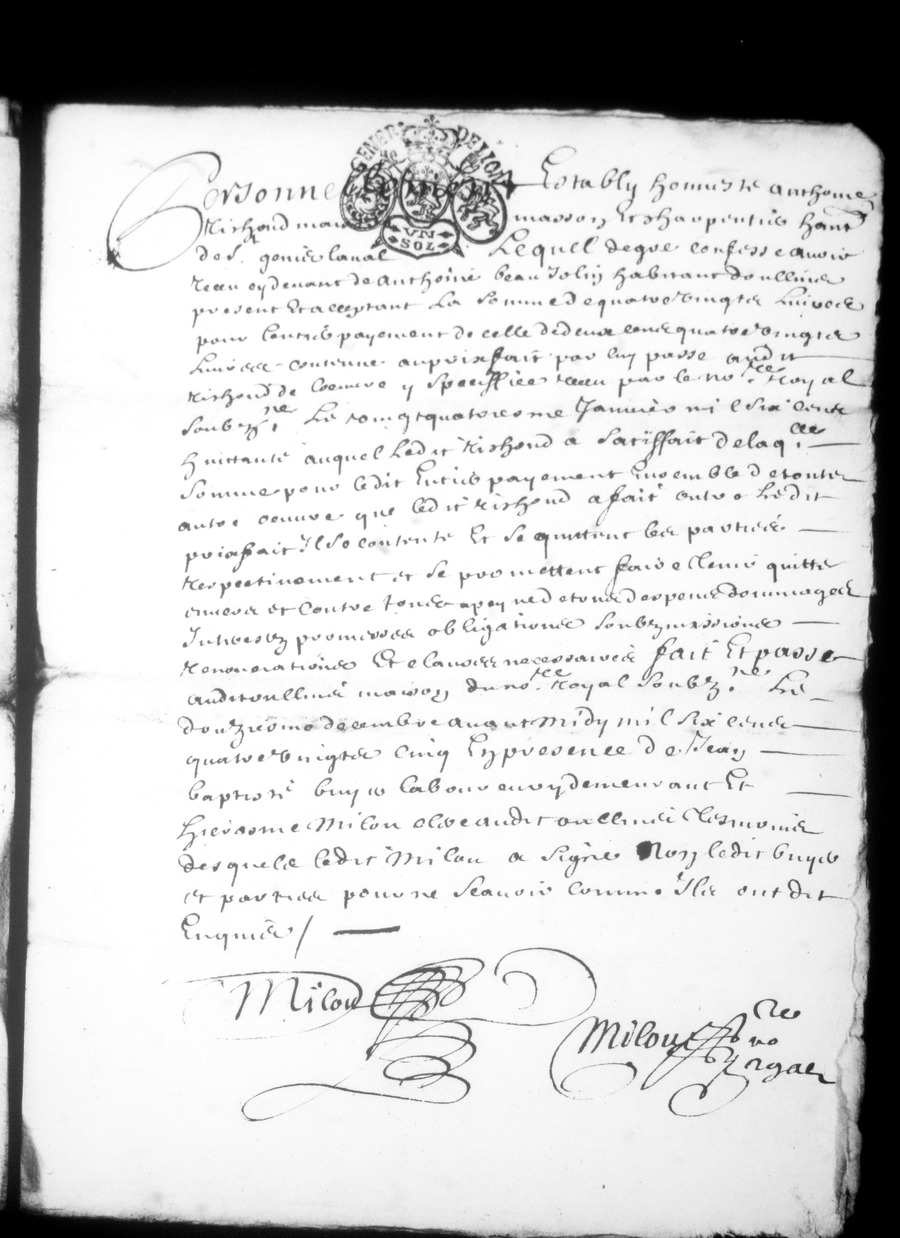 GENER DE LYON
VN
SOL
Personne Estably honneste anthoine
Richond masson Et Charpentier hant
de St genis laual Lequel de gre confesse auoir
receu cy deuant de Anthoine beau Jolin habitant doullins
present Et acceptant La somme de quatre vingtz Liures
pour lentier payement de celle de deux cens quatre vingtz
Liures contenue au prixfait par luy passe audit
Richond de loeuure y speciffiee receu par le nore Royal
soubzne Le vingtquatriesme Januier mil six cens
huittante auquel Ledit Richond a satisffait de laqlle
somme pour ledit Entier payement Ensemble de toutte
autre oeuure que ledit Richond a fait outre Ledit
prixfait Il se contente Et se quittent les parties
Respectiuement et se promettent faire tenir quitte
enuers et contre tous a peyne de tous despens dommages
Interestz promesses obligations soubzmissions
Renonciations Et clauses necessaires fait Et passe
audit oullins maison du nore Royal soubzne Le
douziesme decembre auant midy mil six cens
quatre vingtz cinq En presence de Jean
baptiste buyer laboureur y demeurant Et
hierosme Milou clerc audit oullins tesmoins
desquels ledit Milou a signe Non ledit buyer
et parties pour ne scauoir comme Ils ont dit
Enquis /
Milou
Milou nore
royal